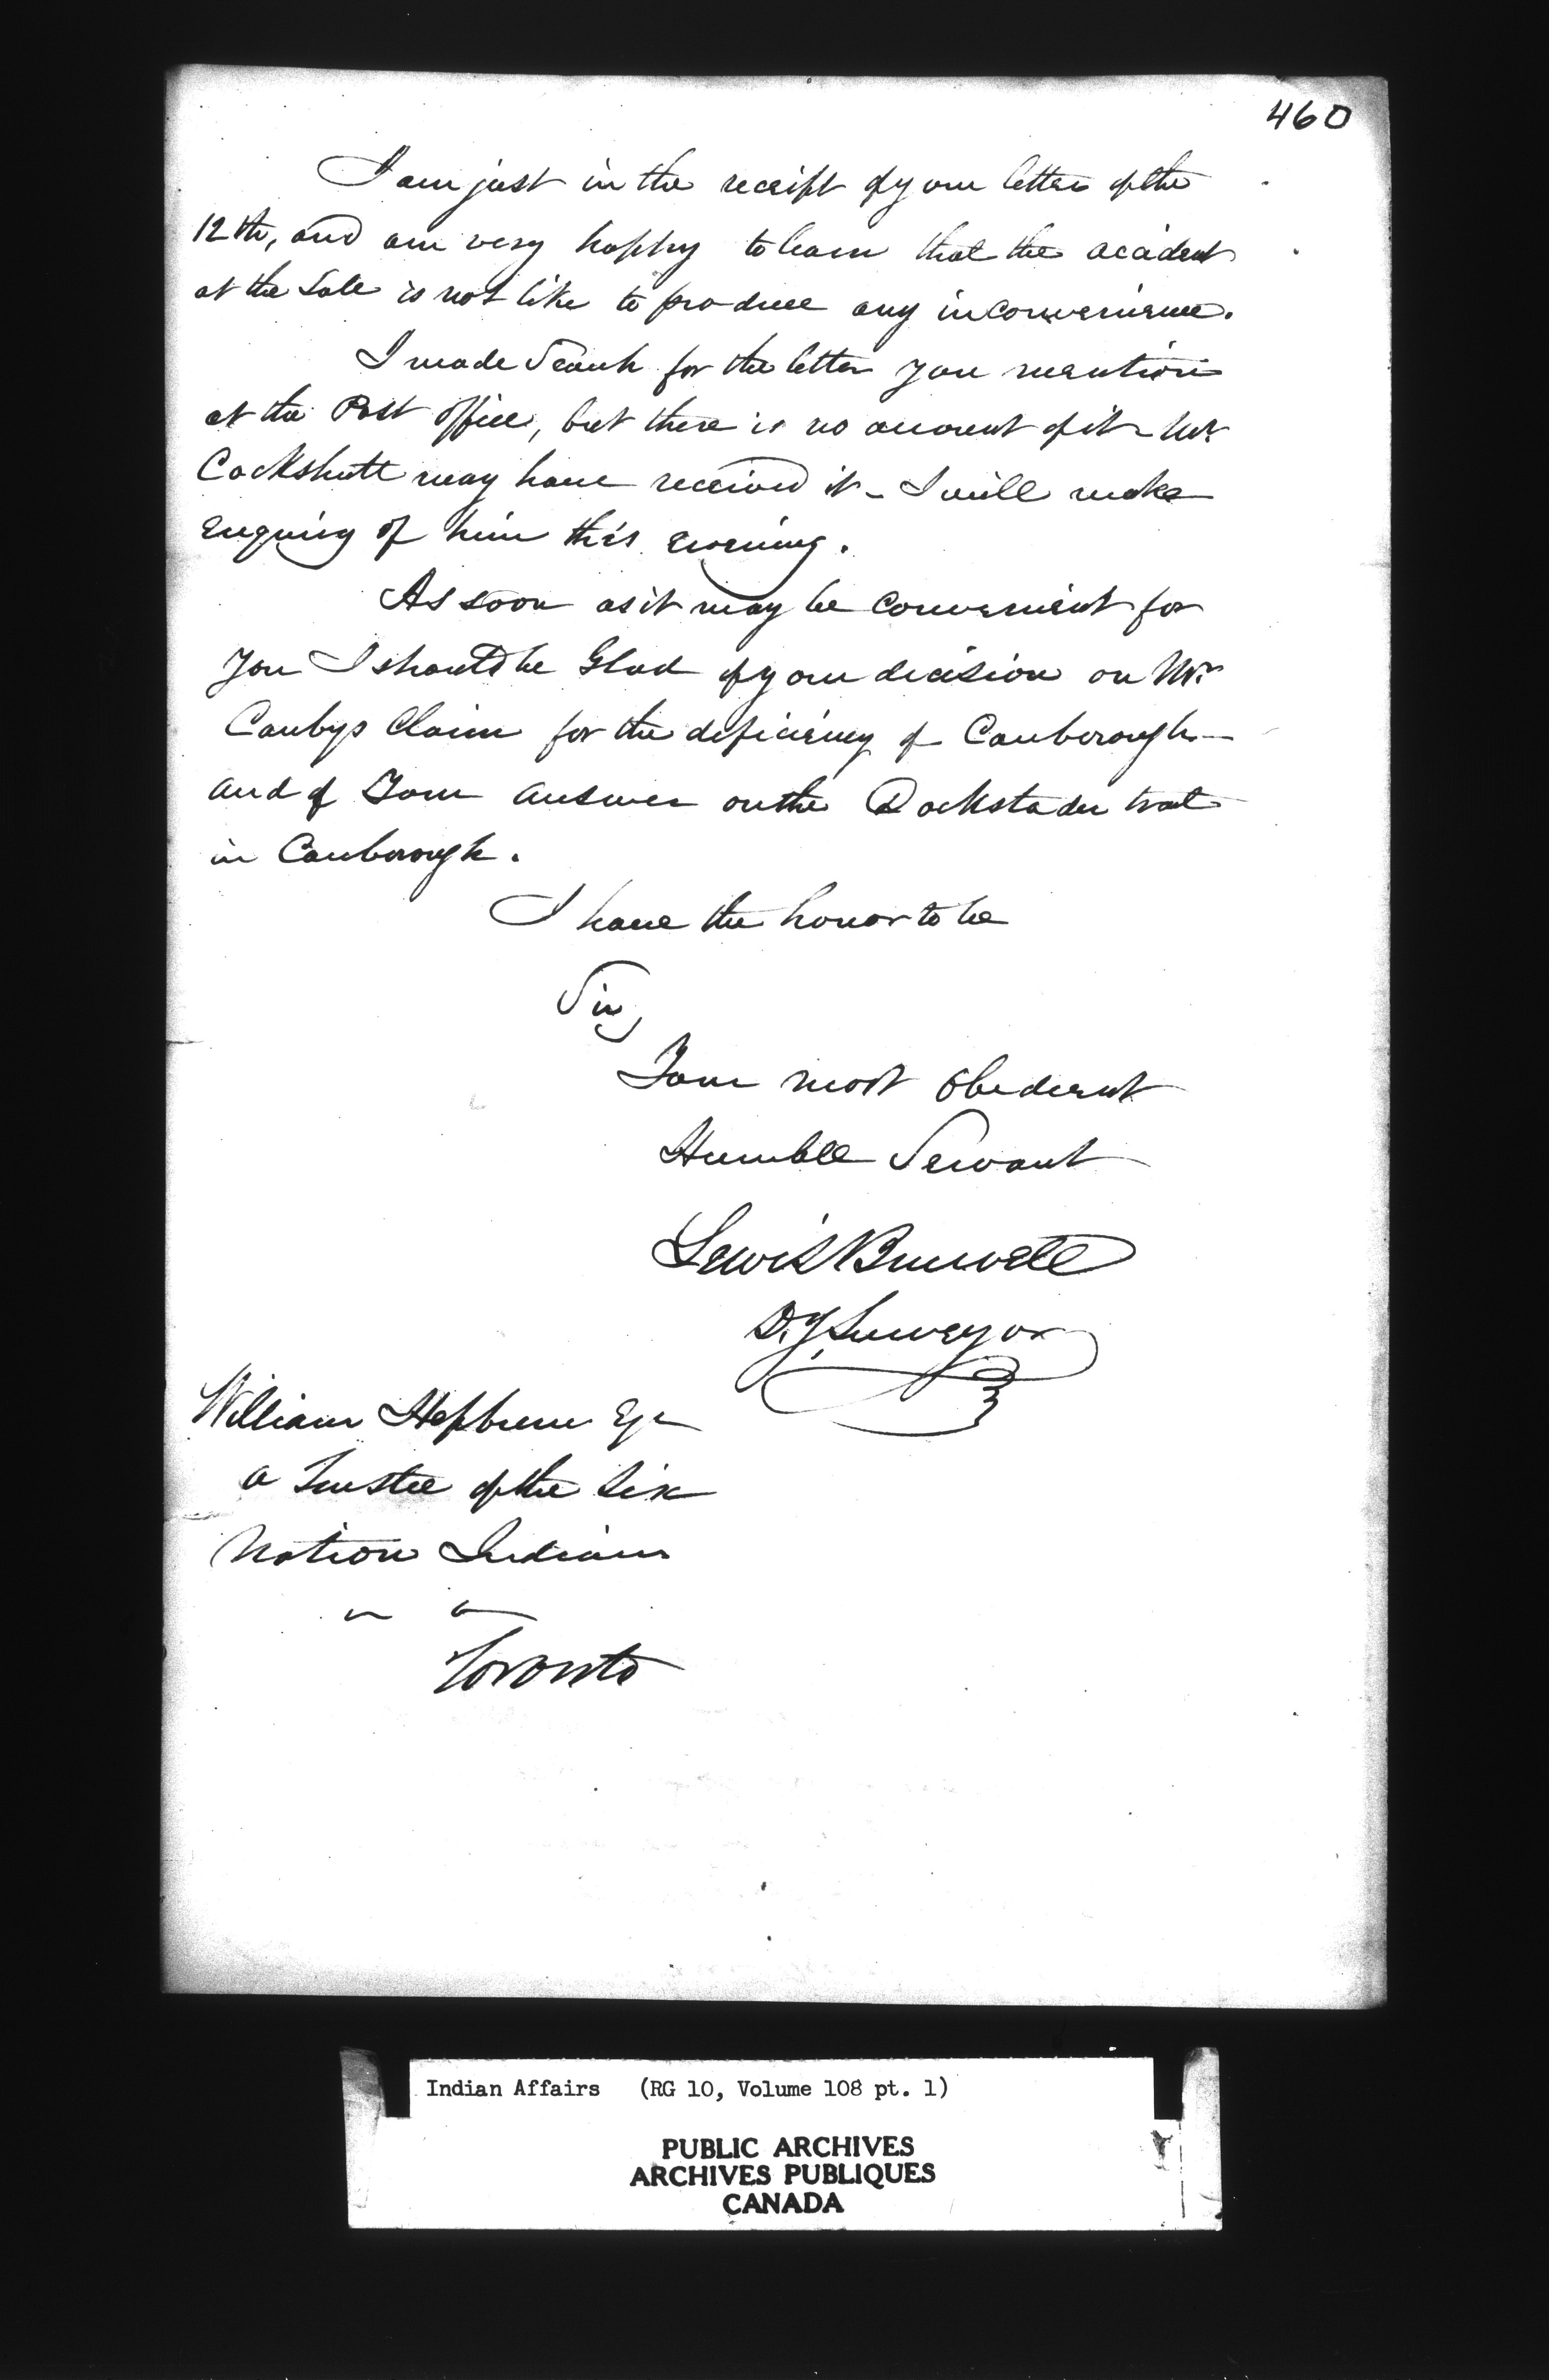 460
I am just in the receipt of your letter of the
12th, and am very happy to learn that the accident
at the Sale is not like to produce any inconvenience.
I made Search for the letter you mention
at the Post Office, but there is no account of it - Mr.
Cockshutt may have received it - I will make
enquiry of him this evening.
As soon as it may be convenient for
you I should be Glad of your decision on Mr.
Canbys Claim for the deficiency of Canborough -
and of Your answer on the Dockstader tract
in Canborough.
I have the honor to be
Sir,
Your most obedient
Humble Servant
Lewis Burwell
D.y Surveyor
William Hepburn Esqr
a Trustee of the Six
Nation Indians
Toronto
Indian Affairs (RG 10, Volume 108 pt. 1)
PUBLIC ARCHIVES
ARCHIVES PUBLIQUES
CANADA